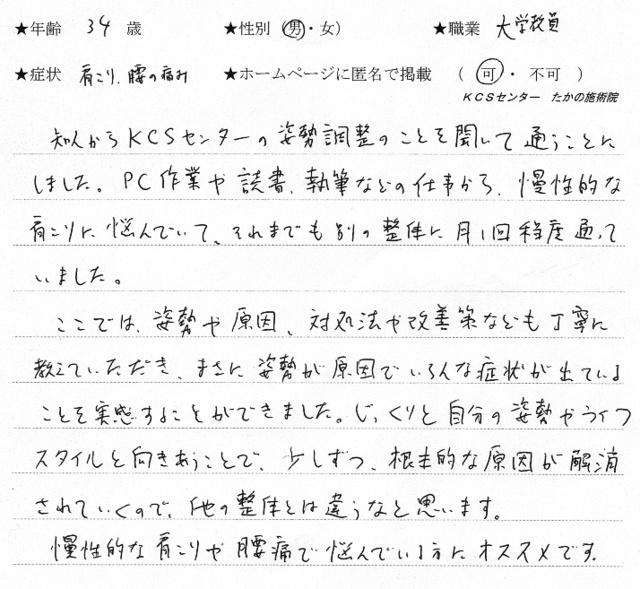 ★年齢 34 歳 ★性別(男・女) ★職業 大学教員
★症状 肩こり、腰の痛み ★ホームページに匿名で掲載 ( 可 ・ 不可 )
KCSセンター たかの施術院
知人からKCSセンターの姿勢調整のことを聞いて通うことに
しました。PC作業や読書、執筆などの仕事から、慢性的な
肩こりに悩んでいて、それまでも別の整体に月1回程度通って
いました。
ここでは、姿勢や原因、対処法や改善策なども丁寧に
教えていただき、まさに姿勢が原因でいろんな症状が出ている
ことを実感することができました。じっくりと自分の姿勢やライフ
スタイルと向きあうことで、少しずつ、根本的な原因が解消
されていくので、他の整体とは違うなと思います。
慢性的な肩こりや腰痛で悩んでいる方にオススメです。